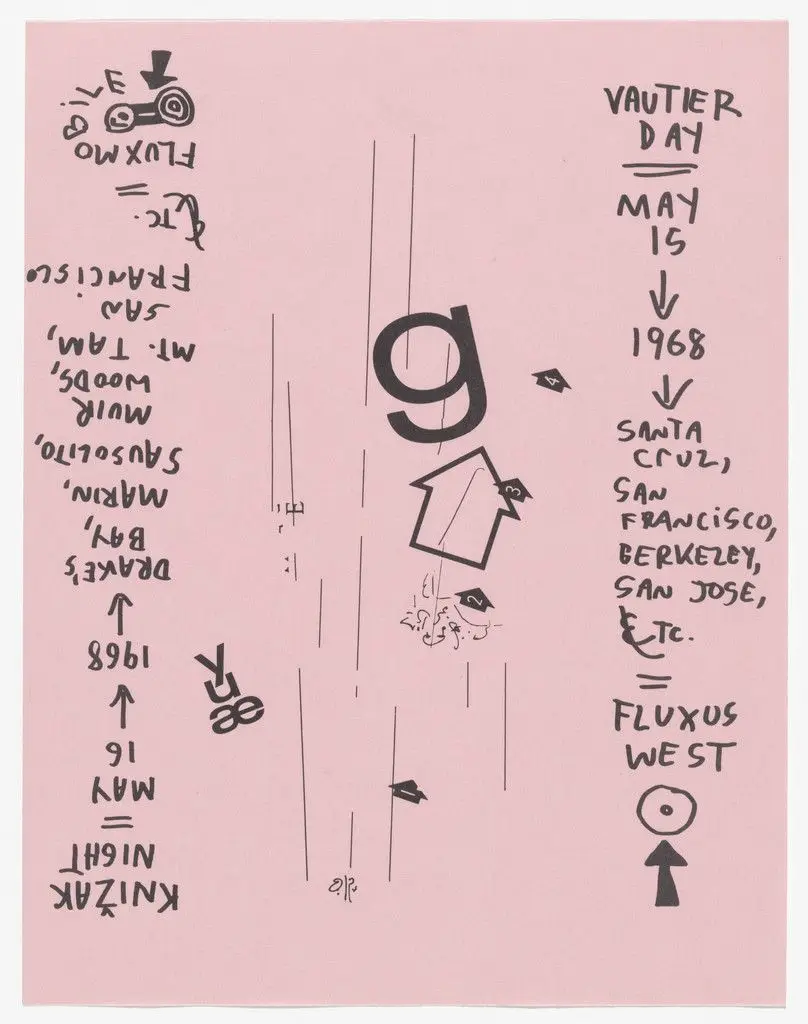 VAUTIER
DAY
MAY
15
↓
1968
↓
SANTA
CRUZ,
SAN
FRANCISCO,
BERKELEY,
SAN JOSE,
ETC.
=
FLUXUS
WEST
g
4
3
2
1
y
u
ae
KNIŽAK
NIGHT
=
MAY
16
↓
1968
↓
DRAKE'S
BAY,
MARIN,
SAUSOLITO,
MUIR
WOODS,
MT. TAM,
SAN
FRANCISCO
ETC.
=
FLUXMO
BILE